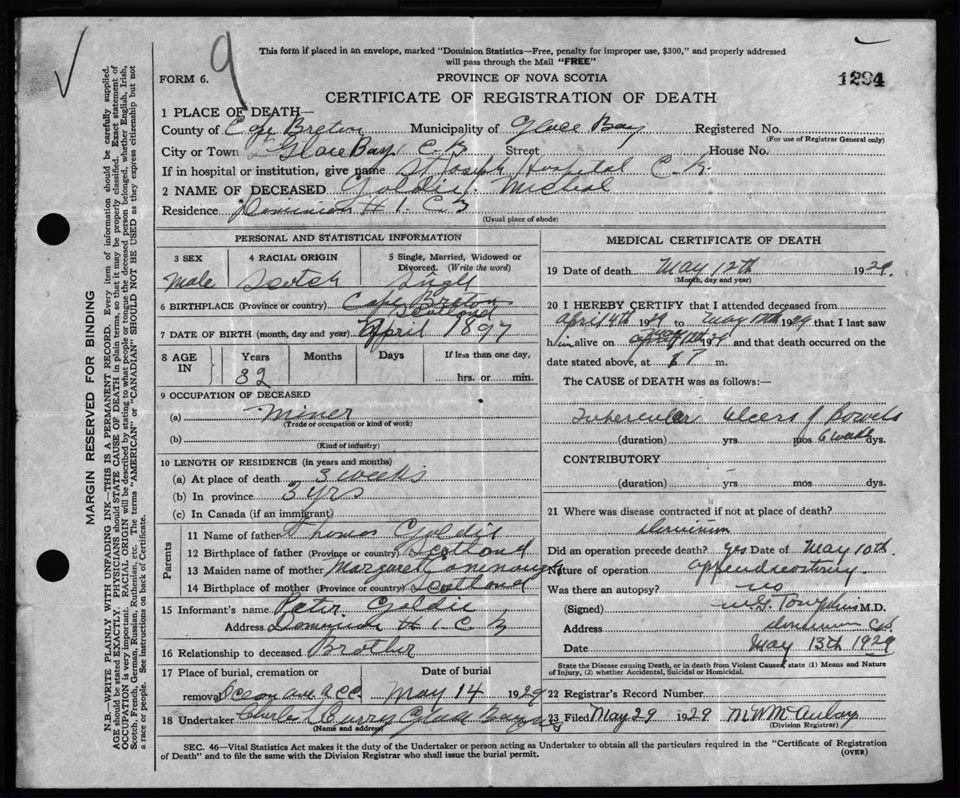 This form if placed in an envelope, marked "Dominion Statistics—Free, penalty for improper use, $300," and properly addressed
will pass through the Mail "FREE"
9
FORM 6.
PROVINCE OF NOVA SCOTIA
1294
CERTIFICATE OF REGISTRATION OF DEATH
1 PLACE OF DEATH—
County of Cape Breton Municipality of Glace Bay Registered No.
(For use of Registrar General only)
City or Town Glace Bay C.B. Street House No.
If in hospital or institution, give name St Joseph Hospital C.B.
2 NAME OF DECEASED Goldie, Micheal
Residence Dominion # 1. C B
(Usual place of abode)
PERSONAL AND STATISTICAL INFORMATION
3 SEX
Male
4 RACIAL ORIGIN
Scotch
5 Single, Married, Widowed or
Divorced. (Write the word)
Single
6 BIRTHPLACE (Province or country) Cape Breton
Scotland
7 DATE OF BIRTH (month, day and year) April 1897
8 AGE
IN
Years Months Days If less than one day,
32
hrs. or min.
9 OCCUPATION OF DECEASED
(a) Miner
(Trade or occupation or kind of work)
(b)
(Kind of industry)
10 LENGTH OF RESIDENCE (in years and months)
(a) At place of death 3 weeks
(b) In province 3 yrs
(c) In Canada (if an immigrant)
Parents
11 Name of father Thomas Goldie
12 Birthplace of father (Province or country) Scotland
13 Maiden name of mother Margaret
14 Birthplace of mother (Province or country) Scotland
15 Informant's name Peter Goldie
Address Dominion # 1 C B
16 Relationship to deceased Brother
17 Place of burial, cremation or
removal Ocean Ave
Date of burial
May 14 1929
18 Undertaker Charles Curry Glace Bay
(Name and address)
MEDICAL CERTIFICATE OF DEATH
19 Date of death May 12th 1929.
(Month, day and year)
20 I HEREBY CERTIFY that I attended deceased from
April 4th 1929 to May 12th 1929 that I last saw
him alive on 19 and that death occurred on the
date stated above, at m.
The CAUSE of DEATH was as follows:—
Tubercular Ulcers of Bowels
(duration) yrs mos 6 weeks dys.
CONTRIBUTORY
(duration) yrs mos dys.
21 Where was disease contracted if not at place of death?
Dominion
Did an operation precede death? Yes Date of May 10th.
Nature of operation appendicostomy.
Was there an autopsy? no
(Signed) M.D.
Address Dominion C.B.
Date May 13th 1929
State the Disease causing Death, or in death from Violent Causes, state (1) Means and Nature
of Injury, (2) whether Accidental, Suicidal or Homicidal.
22 Registrar's Record Number
23 Filed May 29 1929
(Division Registrar)
SEC. 46—Vital Statistics Act makes it the duty of the Undertaker or person acting as Undertaker to obtain all the particulars required in the "Certificate of Registration
of Death" and to file the same with the Division Registrar who shall issue the burial permit.
(OVER)
MARGIN RESERVED FOR BINDING
N.B.—WRITE PLAINLY WITH UNFADING INK—THIS IS A PERMANENT RECORD. Every item of information should be carefully supplied.
AGE should be stated EXACTLY. PHYSICIANS should STATE CAUSE OF DEATH in plain terms, so that it may be properly classified. Exact statement of
OCCUPATION is very important. RACIAL ORIGIN will be described by stating to what people or tongue the deceased person belonged, whether English, Irish,
Scotch, French, German, Russian, Ruthenian, etc. The terms "AMERICAN" or "CANADIAN" SHOULD NOT BE USED as they express citizenship but not
a race or people. See instructions on back of Certificate.